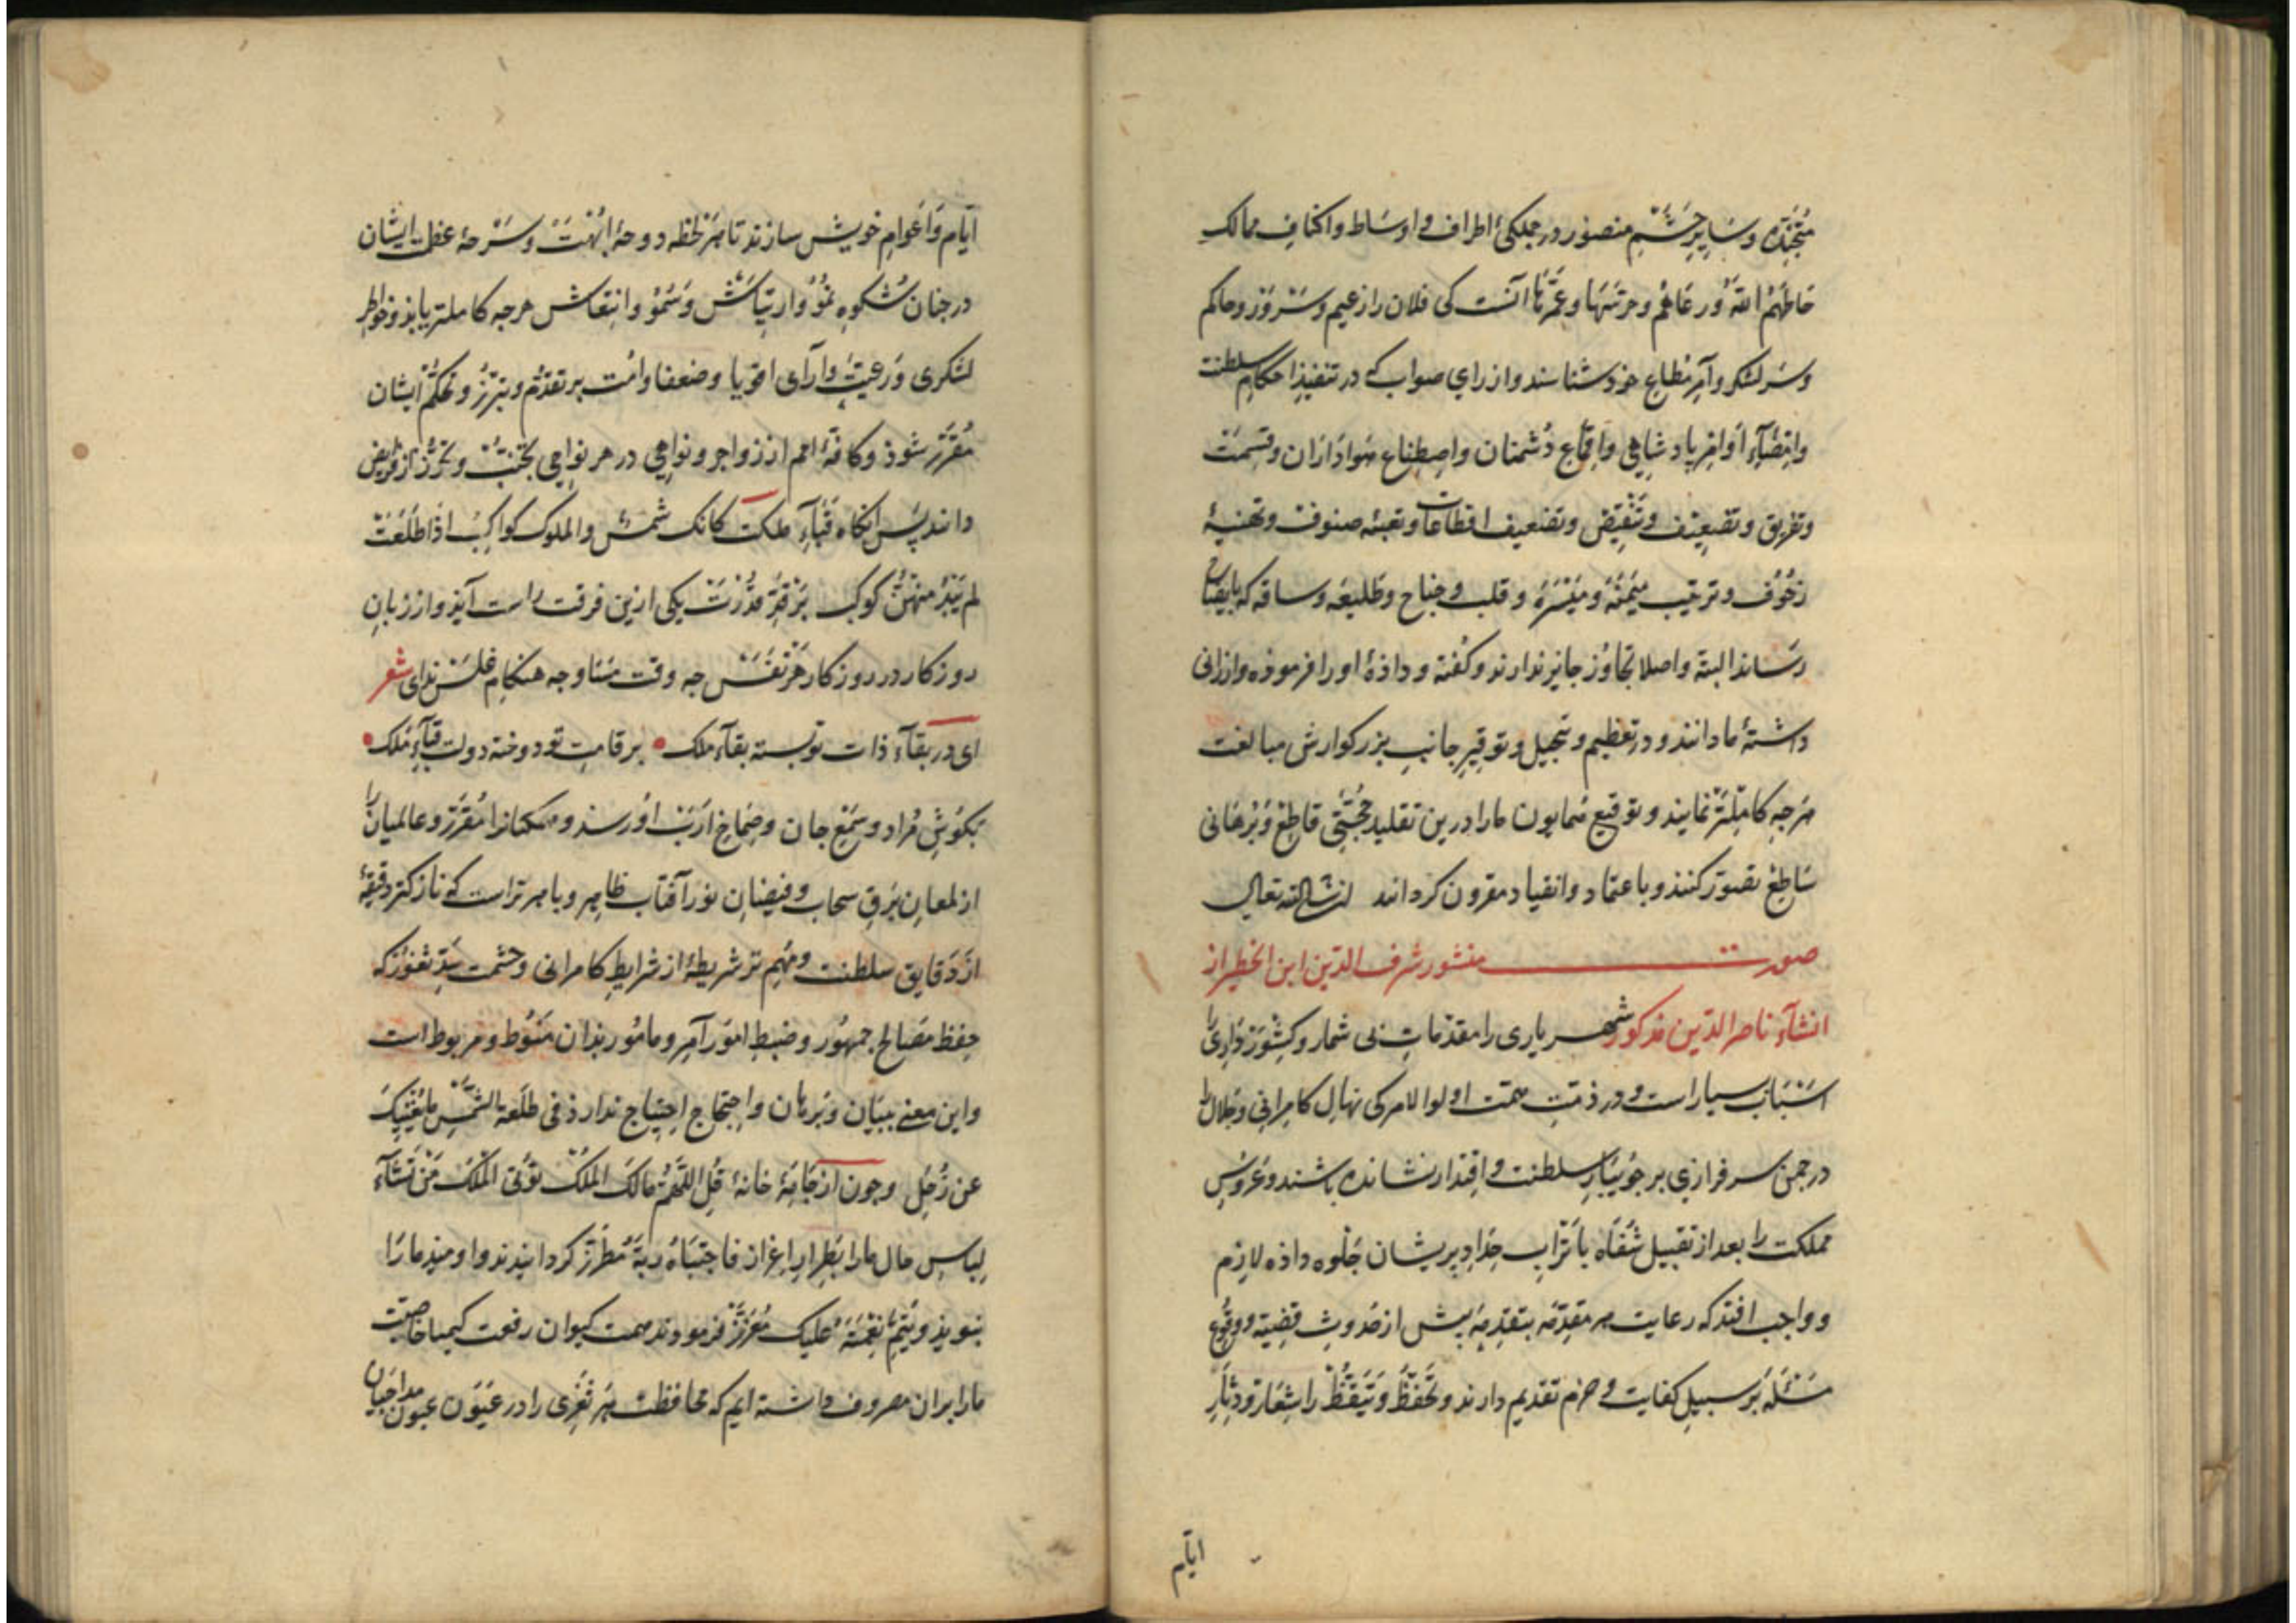 متجنّده و سایر حشم منصور در جملکیٔ اطراف و اوساط و اکناف ممالک
حاطهم الله و رعاهم و حرسها و عمّرها آنست کی فلان را زعیم و سرور و حاکم
و سرلشکر و آمر مطاع خود شناسند و از رای صواب که در تنفیذ احکام سلطنت
و امضآء اوامر پادشاهی و اقماع دشمنان و اصطناع هواداران و قسمت
و تفریق و تضعیف و تنقیض و تضعیف اقطاعات و تعبئه صنوف و تهنیهٔ
زحوف و ترتیب میمنه و میسره و قلب و جناح و طلیعه و ساقه که بایضاح
رساند البتة و اصلا تجاوز جایز ندارند و کفته و داذهٔ او را فرموذه و ارزانی
داشتهٔ ما دانند و در تعظیم و تبجیل و توقیر جانب بزرکوارش مبالغت
هرجه کاملتر نمایند و توقیع همایون ما را درین تقلید حجّتی قاطع و برهانی
ساطع تصوّر کنند و باعتماد و انقیاد مقرون کردانند ان شاء الله تعالی
صورت منشور شرف الدین ابن الخطیر از
انشآء ناصر الدین مذکور شهریاری را مقدّمات بی شمار و کشورداری را
اسباب بسیار است و در ذمّت همّت اولوا الامر کی نهال کامرانی و جلال را
در جمن سرفرازی بر جویبار سلطنت و اقتدار نشانده باشند و عروس
مملکت را بعد از تقبیل شفاه با تراب حداد بریشان جلوه داذه لازم
و واجب افتد که رعایت هر مقدّمه بتقدمه بیش از حدوث قضیّه و وقوع
مسئله بر سبیل کفایت و حزم تقدیم دارند و تحفّظ و تیقّظ را شعار و دثار
ایام
ایّام و اعوام خویش سازند تا هر لحظه دوحهٔ ابّهت و سرحهٔ عظمت ایشان
در جنان شکوه نموّ و ارتیاش و سموّ و انتقاش هرجه کاملتر یابذ و خواطر
لشکری و رعیت و آرای اقویا و ضعفا و امّت بر تقدّم و تبرّز و تحکّم ایشان
مقرّر شوذ و کافّهٔ امم از زواجر و نواهی در هر نواحی تجنّب و تحرّز از فرایض
دانند پس آنکاه قبآء ملکت کانک شمس والملوک کواکب اذا طلعت
لم یبد منهنّ کوکب بر قدّ قدرت یکی ازین فرقت راست آیذ و از زبان
روزکار در روزکار هر نفس جه وقت مسا و جه هنکام غلس ندای شعر
ای در بقآء ذات تو بسته بقآء ملک • بر قامت تو دوخته دولت قبآء ملک •
بکوش مراد و سمع جان و صماخ ارب او رسذ و همکنانرا مقرّر و عالمیانرا
از لمعان برق سحاب و فیضان نور آفتاب ظاهر و باهرتر است که نازکتر دقیقهٔ
از دقایق سلطنت و مهم تر شریطهٔ از شرایط کامرانی و حشمت سدّ ثغور که
حفظ مصالح جمهور و ضبط امور آمر و مامور بذان منوط و مربوط است
و این معنی ببیان و برهان و احتجاج احتیاج ندارذ فی طلعة الشمس ما یغنیک
عن زحل و جون از جامهٔ خانهٔ قل اللّهمّ مالک الملک تؤتی الملک من تشآء
لباس حال ما را بطراز اعزاز فاجتباه ربّه مطرّز کردانیدند و اومید ما را
بنوید و یتمّ نعمته علیک معزّز فرمودند همت کیوان رفعت کیمیا خاصیّت
ما را بران مصروف داشته ایم که محافظت هر ثغری را در عیون عیون مداحیان